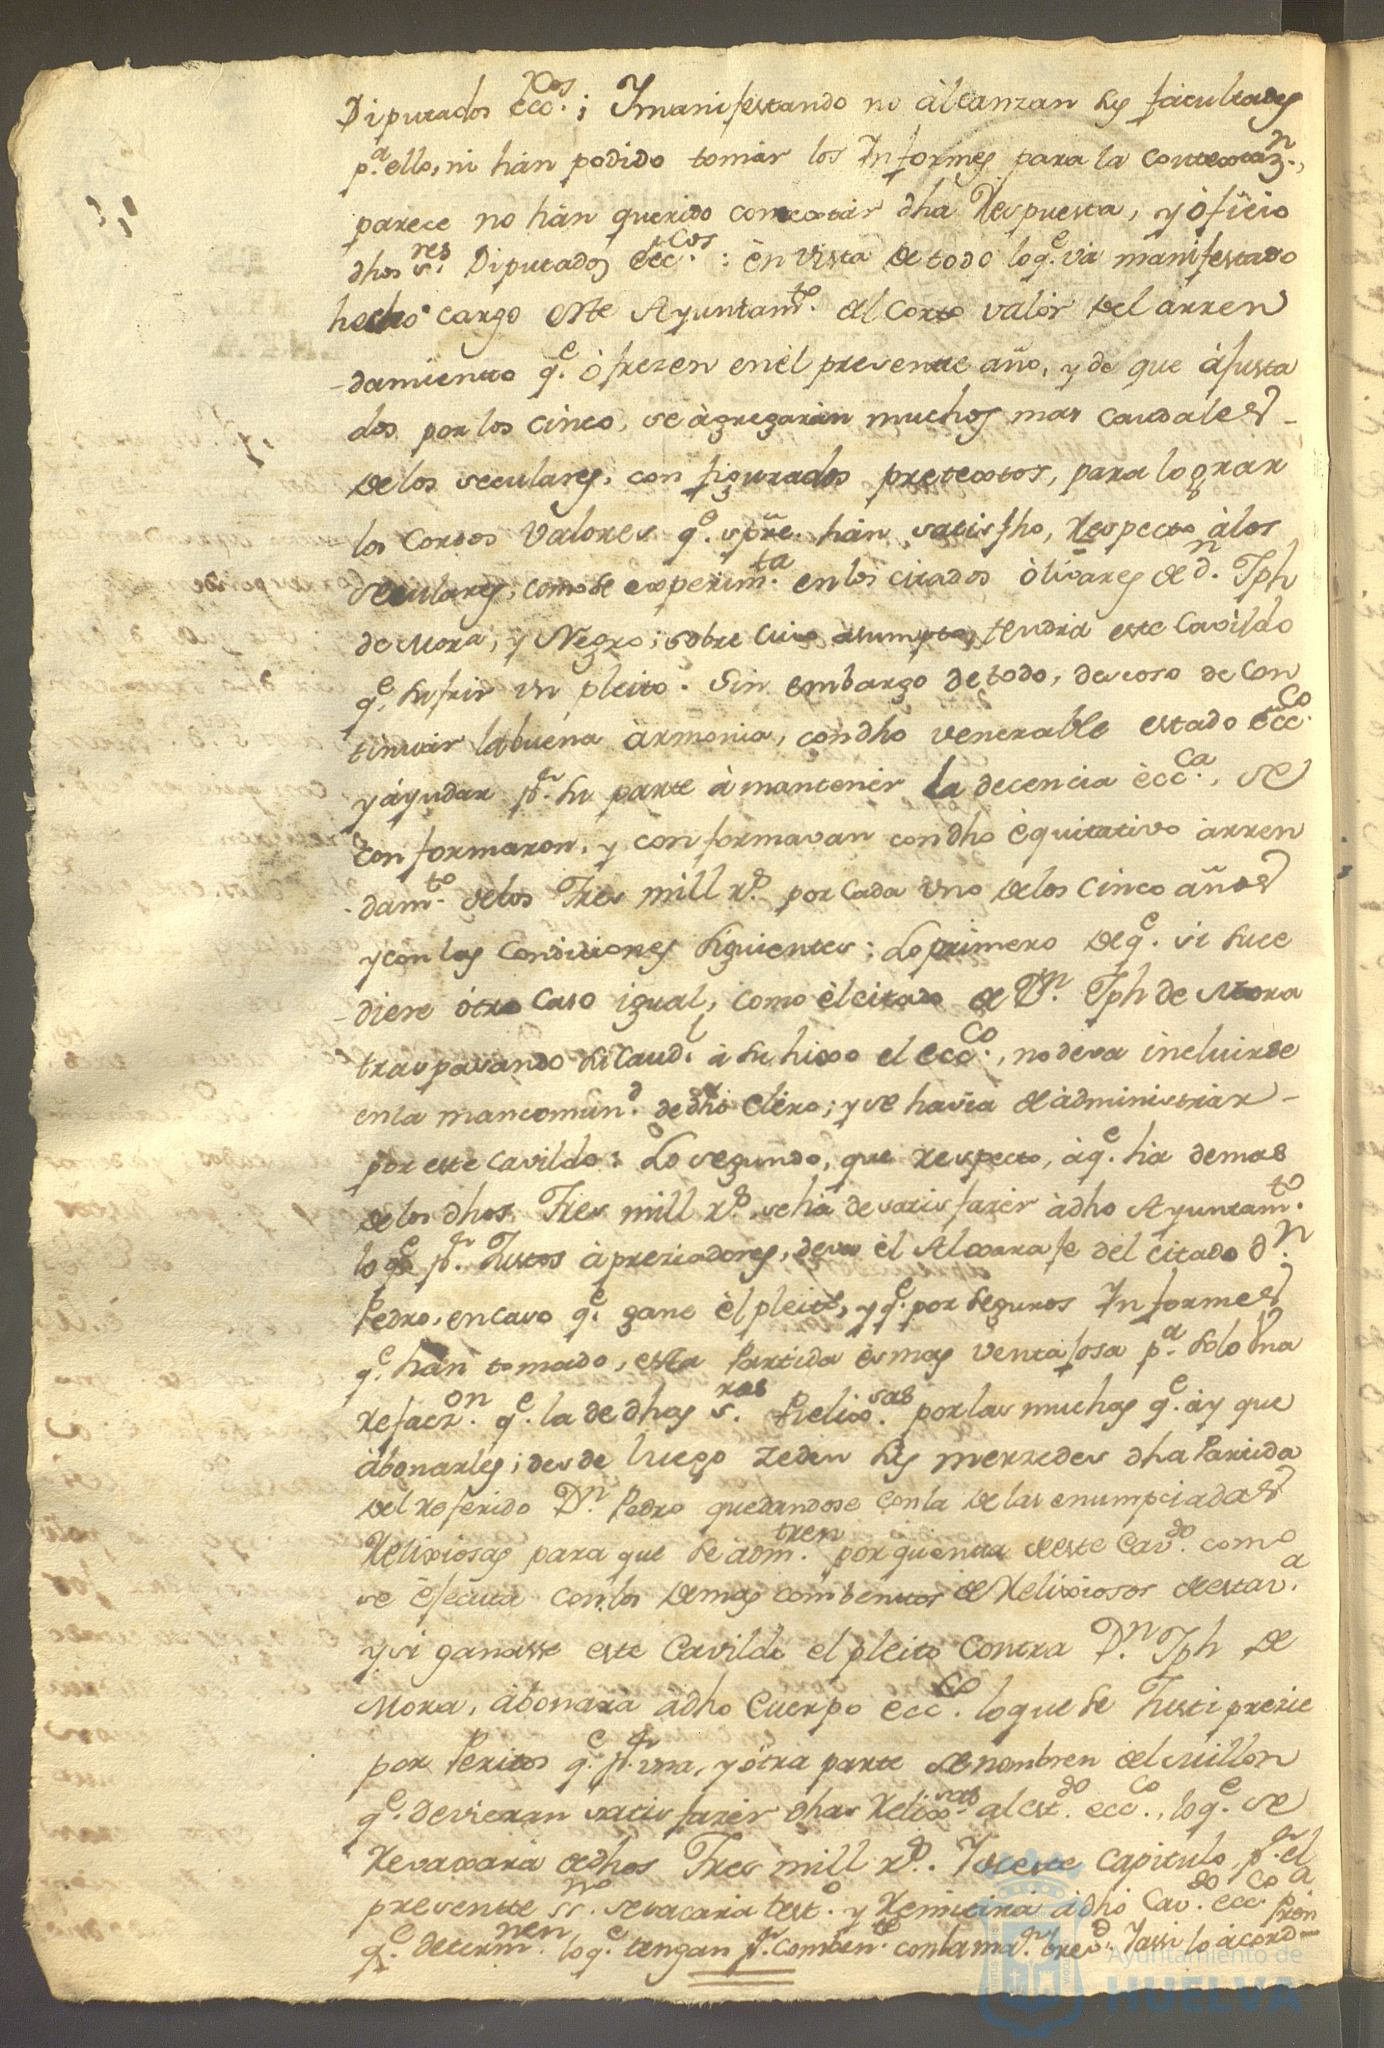 Diputados ecc.cos; Ymanifestando no àlcanzan sus facultades
p.a ello, ni hàn podido tomàr los Ynformes para la contextaz.n,
parece no hàn querido contextàr dha Respuesta, y òficio
dhos s.res Diputados ecc.cos: èn vista de todo loq.e và manifestado
hecho cargo este Ayuntam.to del Corto valòr del arren
-damiento q.e òfrezen en èl presentte año, y de que àjusta
dos por los cinco, se àgregaràn muchos mas caudales -
de los seculares, con figurados pretextos, para lograr
los Cortos Valores q.e spre. hàn satisfho, Respecto àlos
seculares, como se experim.ta en los citados òlivares de d.n Jph
de Mora, y Negro; sobre cuio asumpto, tendrìa este Cavildo
q.e sufrir un pleito. Sin embargo de todo, deseoso de Con
tinuàr labuena àrmonia, condho venerable estado ecc.co
y àyudar p.r su parte à mantenèr la decencia ècc.ca, se
Conformaron, y conformavan condho èquitativo àrren
-dam.to delos Tres mill r.s por Cada uno de los Cinco años
y con las Condiciones siguientes: Lo primero de q.e si suce
-diere òtro Caso igual, como èl citado de D.n Jph de Mora
traspasando su Caud.l à su hixo el ecc.co, no deva incluirse
en la mancomun.d de dho clèro; y se havìa de àdministràr -
por este Cavildo: Lo segundo, que Respecto, à q.e hà demas
de los dhos Tres mill r.s se hà de satisfazèr àdho Ayuntam.to
lo q.e p.r Justos àpreziadores, deva èl Aloxarafe del citado d.n
Pedro, en caso q.e gane èl pleito, y q.e por seguros Ynformes
q.e hàn tomado, esta Partida ès mas ventajosa p.a solo una
Refacz.on q.e la de dhas s.ras Relix.sas por las muchas q.e ày que
àbonarles; desde luego zeden sus merzedes dha Partida
del referido D.n Pedro quedandose con la de las enumpciadas
Relixiosas para que se adm.tren por quenta de este Cav.do como
se èjecuta con los demas combentos de Relixiosos de esta v.a
y si ganasse este Cavildo el pleito Contra D.n Jph de
Mora, àbonarà àdho Cuerpo ecc.co lo que se Justi prezie
por Peritos q.e p.r una, y òtra parte se nombren del Millon
q.e devieran satisfazèr dhas Relix.sas al est.do ecc.co, lo q.e se
Revaxarà de dhos Tres mill r.s. Y de este Capitulo, p.r el
presentte ss.no se sacarà test.o y Remitirà à dho Cav.do ecc.co p.a
q.e determ.nen lo q.e tengan p.r comben.te con la ma.r brev.d Y assi lo àcord-
Ayuntamiento de
HUELVA